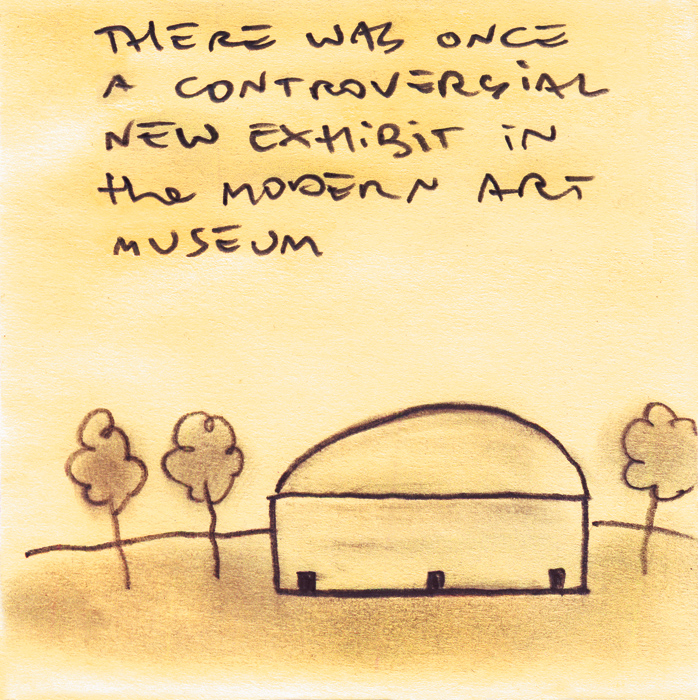 THERE WAS ONCE
A CONTROVERSiAL
NEW EXHiBiT iN
the MODERN ART
MUSEUM